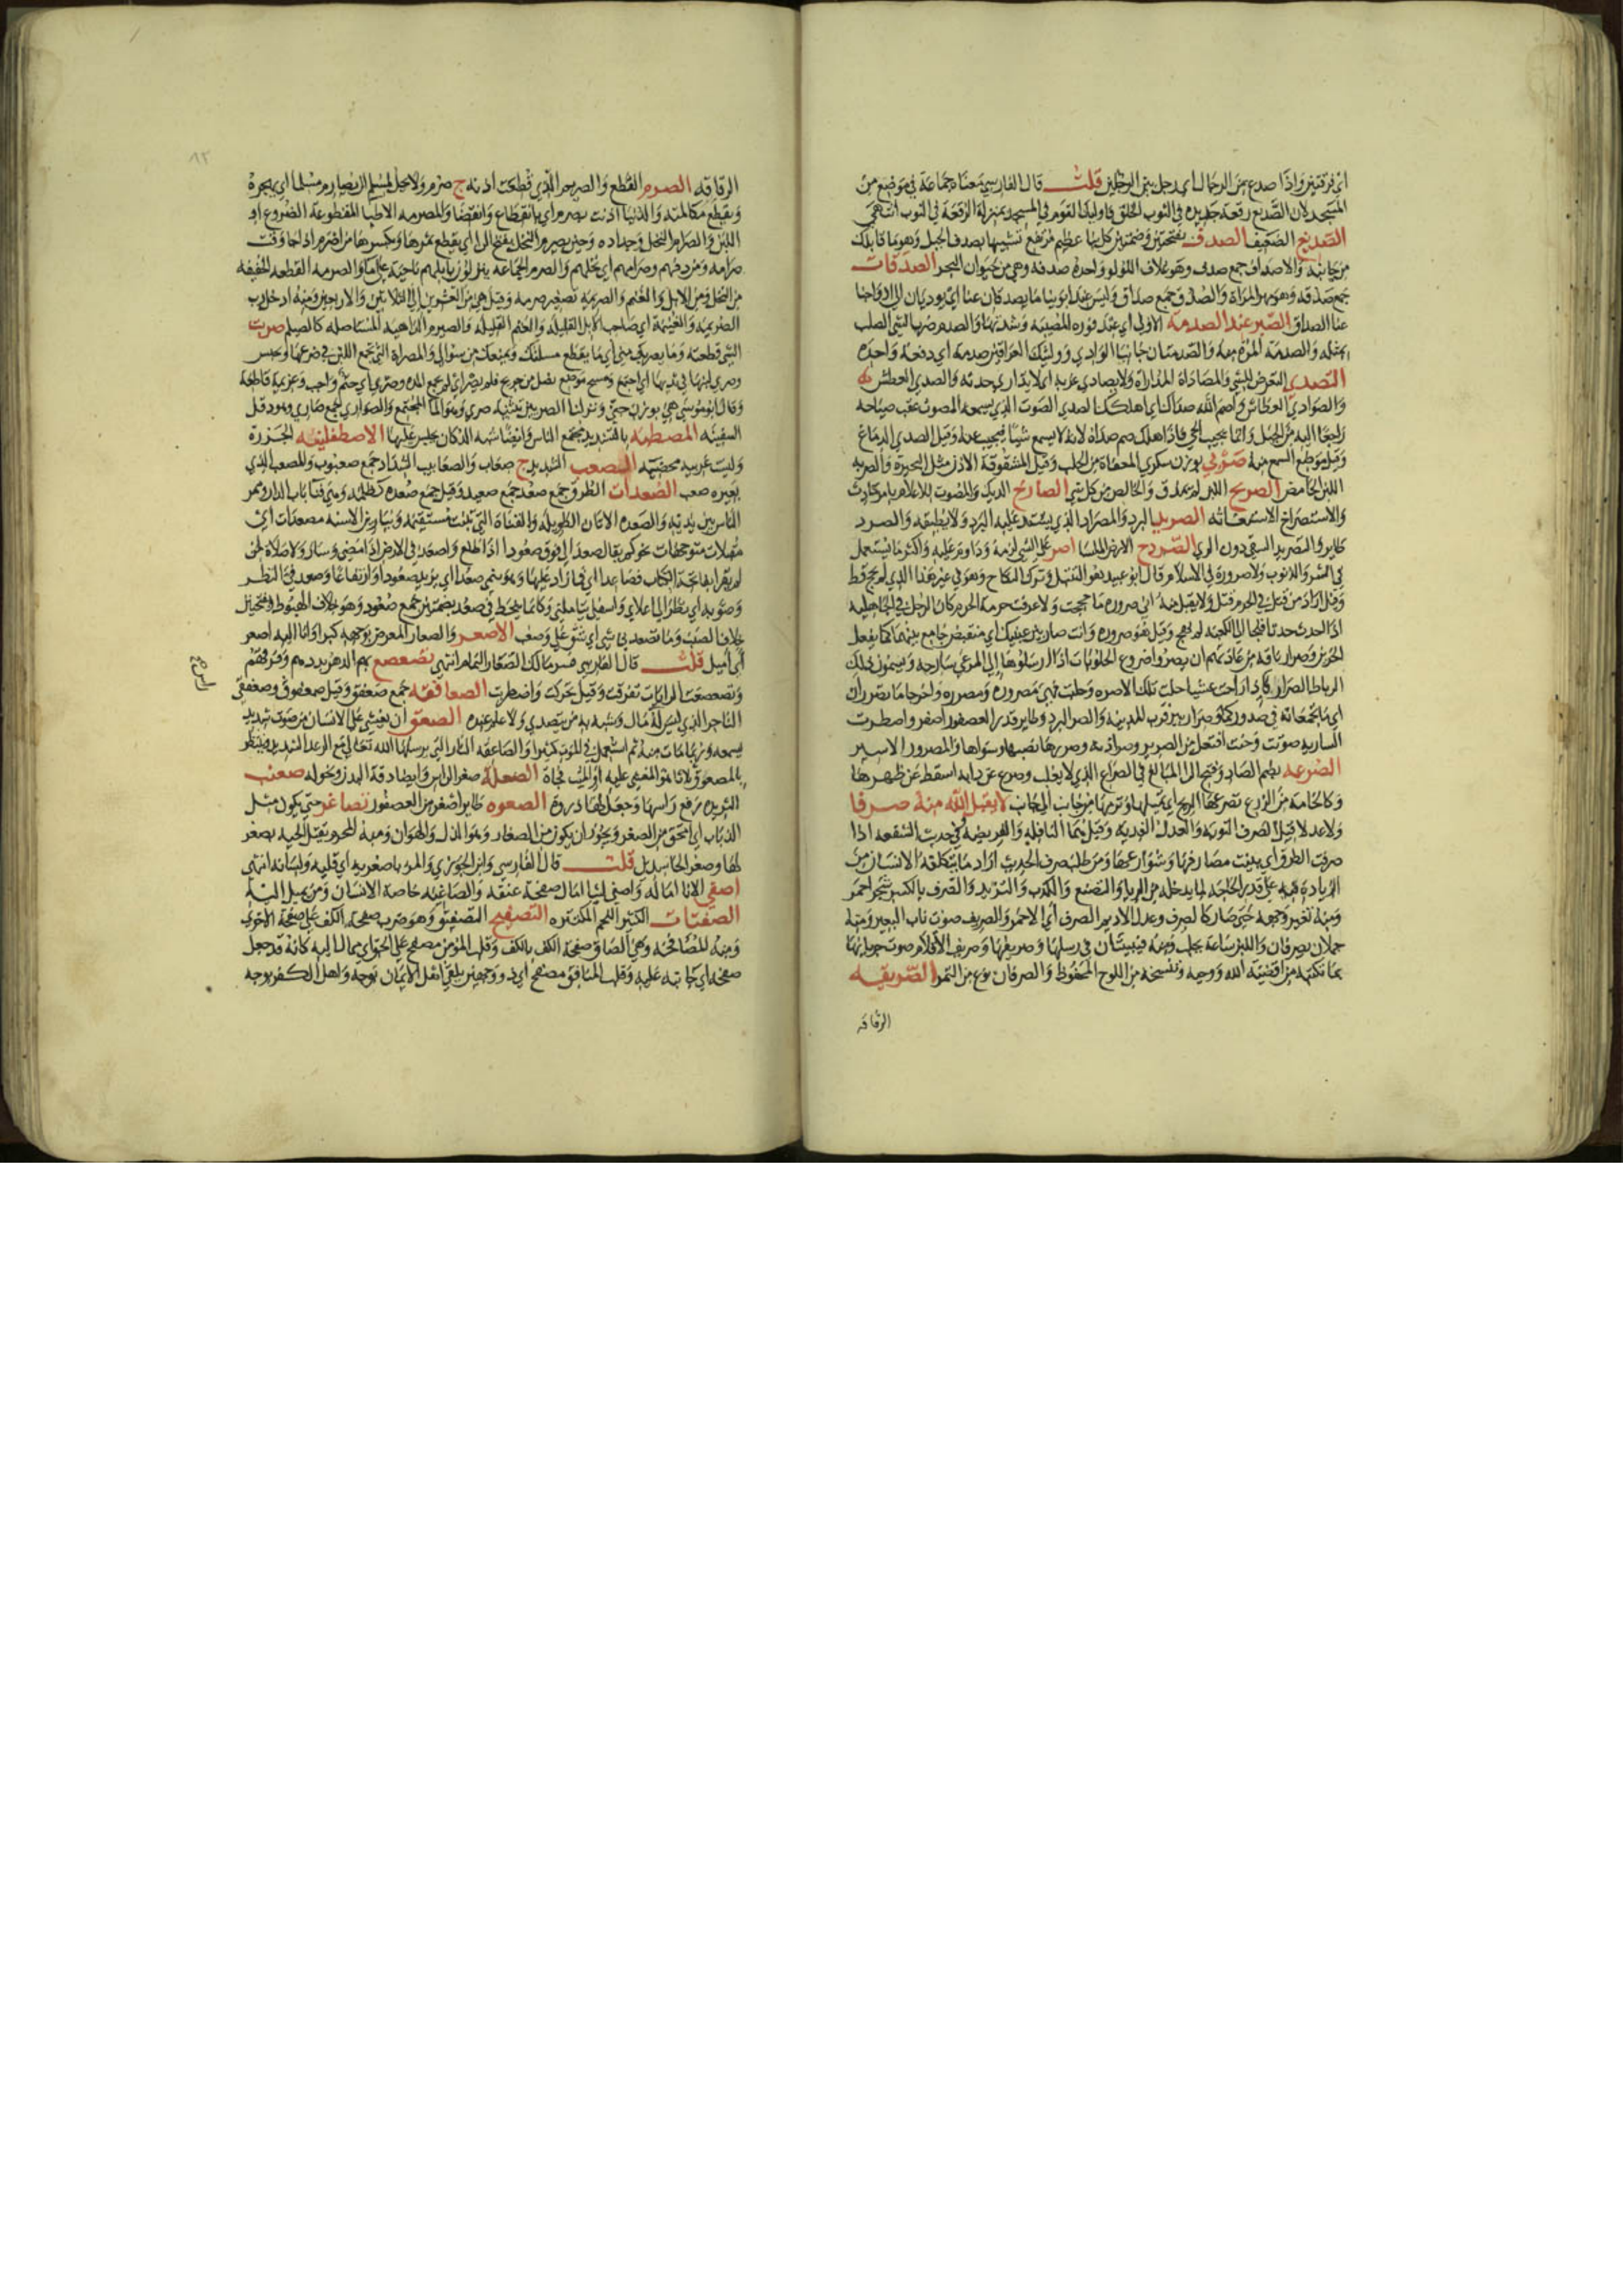 اي فرقتين واذا صدع من الرجال اي رجل بين الرجلين قلت قال الفارسي معناه جماعة في موضع من
المسجد لان الصديع رقعة جديدة في الثوب الخلق فاوليك القوم في المسجد بمنزلة الرقعة في الثوب انتهى
الصديغ الضعيف الصدف بفتحتين وضمتين كل بنا عظيم مرتفع تشبيها بصدف الجبل وهو ما قابلك
من جانبه والاصداف جمع صدف وهو غلاف اللولو واحدة صدفة وهي من حيوان البحر الصدقات
جمع صدقة وهو مهر المراة والصدق جمع صداق وليس عند ابوينا ما يصدقان عنا اي يوديان الى ازواجنا
عنا الصداق الصبر عند الصدمة الاولى اي عند فورة المصيبة وشدتها والصدم ضرب الشي الصلب
بمثله والصدمة المرة منه والصدمتان جانبا الوادي ووليتك العراقين صدمة اي دفعة واحدة
التصدي التعرض للشي والمصاداة المداراة ولا يصادى غربه اي لا يدارى حدته والصدى العطش
والصوادي العطاش واصم الله صداك اي اهلكك الصدى الصوت الذي يسمعه المصوت عقب صياحه
راجعا اليه من الجبل وانما يجيب الحي فاذا هلك صم صداه لانه لا يسمع شيا فيجيب عنه وقيل الصدى الدماغ
وقيل موضع السمع منه صربى بوزن سكرى المعفاة من الحلب وقيل المشقوقة الاذن مثل البحيرة والصرب
اللبن الحامض الصريح اللبن لم يمذق والخالص من كل شي الصارخ الديك والمصوت للاعلام بامر حادث
والاستصراخ الاستغاثة الصريد البرد والمصراد الذي يشتد عليه البرد ولا يطيقه والصرد
طاير والتصريد السقي دون الري الصردح الارض الملسا اصر على الشي لزمه وداوم عليه واكثر ما يستعمل
في الشر والذنوب ولا صرورة في الاسلام قال ابو عبيد هو التبتل وترك النكاح وهو في غير هذا الذي لم يحج قط
وقيل اراد من قتل في الحرم قتل ولا يقبل منه اني صرورة ما حججت ولا عرفت حرمة الحرم كان الرجل في الجاهلية
اذا احدث حدثا فلجا الى الكعبة لم يهج وقيل هو صرورة وانت صار بين عينيك اي منقبض جامع بينهما كما يفعل
الحزين وصرار ناقة من عادتهم ان يصروا ضروع الحلوبات اذا ارسلوها الى المرعى سارحة ويسمون ذلك
الرباط الصرار فاذا راحت عشيا حلت تلك الاصرة وحلبت فهي مصرورة ومصررة واخرجا ما تصرران
اي ما تجمعانه في صدوركما وصرار بير قرب المدينة والصر البرد وطاير قدر العصفور اصفر واصطرت
السارية صوتت وحنت افتعل من الصرير وصر اذنه وصررها نصبها وسواها والمصرور الاسير
الصرعة بضم الصاد وفتح الرا المبالغ في الصراع الذي لا يغلب وصرع عن دابة اسقط عن ظهرها
وكالخامة من الزرع تصرعها الريح اي تميلها وترميها من جانب الى جانب لا يقبل الله منه صرفا
ولا عدلا قيل الصرف التوبة والعدل الفدية وقيل هما النافلة والفريضة وفي حديث الشفعة اذا
صرفت الطرق اي بينت مصارفها وشوارعها ومن طلب صرف الحديث اراد ما يتكلفه الانسان من
الزيادة فيه على قدر الحاجة لما يدخله من الريا والتصنع والكذب والتزيد والصرف بالكسر شجر احمر
ومنه تغير وجهه حتى صار كالصرف وعدل الاديم الصرف اي الاحمر والصريف صوت ناب البعير ومنه
جملان يصرفان واللبن ساعة يحلب ومنه فيبيتان في رسلها وصريفها وصريف الاقلام صوت جريانها
بما تكتبه من اقضية الله ووحيه وتنسخه من اللوح المحفوظ والصرفان نوع من التمر الصريقة
الرقاقة
الرقاقة الصرم القطع والصريم الذي قطعت اذنه ج صرم ولا يحل لمسلم ان يصارم مسلما اي يهجره
ويقطع مكالمته والدنيا اذنت بصرم اي بانقطاع وانقضا والمصرمة الاطبا المقطوعة الضروع او
اللبن والصرام النخل وجداده وحين يصرم النخل بفتح الرا اي يقطع ثمرها وبكسرها من اصرم اذا جا وقت
صرامه ومن دفيهم وصرامهم اي نخلهم والصرم الجماعة ينزلون بابلهم ناحية على ما والصرمة القطعة الخفيفة
من النخل ومن الابل والغنم والصريمة تصغير صرمة وقيل هي من العشرين الى الثلاثين والاربعين ومنه ادخل رب
الصريمة والغنيمة اي صاحب الابل القليلة والغنم القليلة والصيرم الداهية المستاصلة كالصيلم صريت
الشي قطعته وما يصريك مني اي ما يقطع مسلتك ويمنعك من سوالي والمصراة التي تجمع اللبن في ضرعها ويحبس
وقال ابو موسى هي بوزن جني ونزلنا الصريين تثنية صرى وهو الما المجتمع والصواري جمع صاري وهو دقل
السفينة المصطبة بالتشديد مجتمع الناس وايضا شبه الدكان يجلس عليها الاصطفلينة الجزرة
وليست عربية محضة المصعب الشديد ج صعاب والصعابيب الشداد جمع صعبوب والمصعب الذي
بعيره صعب الصعدات الطرق جمع صعد جمع صعيد وقيل جمع صعدة كظلمة وهي فنا باب الدار وممر
الناس بين يديه والصعدة الاتان الطويلة والقناة التي تنبت مستقيمة ويبارين الاسنة مصعدات اي
مقبلات متوجهات نحوكم يقال صعد الى فوق صعودا اذا طلع واصعد في الارض اذا مضى وسار ولا صلاة لمن
لم يقرا بفاتحة الكتاب فصاعدا اي فما زاد عليها وهو ينمي صعدا اي يزيد صعودا وارتفاعا وصعد في النظر
وصوبه اي نظر الى اعلاي واسفلي يتاملني وكانما ينحط في صعد بضمتين جمع صعود وهو خلاف الهبوط وبفتحتين
خلاف الصبب وما تصعد بي شي اي شق علي وصعب الاصعر والصعار المعرض بوجهه كبرا وانا اليه اصعر
اي اميل قلت قال الفارسي فسر مالك الصعار النمام انتهى تصعصع بهم الدهر بددهم وفرقهم
وتصعصعت الرايات تفرقت وقيل تحركت واضطربت الصعافقة جمع صعفق وقيل صعفوق وصعفقي
التاجر الذي ليس له مال وشبه به من يتصدى ولا علم عنده الصعق ان يغشى على الانسان من صوت شديد
يسمعه وربما مات منه ثم استعمل في الموت كثيرا والصاعقة النار التي يرسلها الله تعالى مع الرعد الشديد وينتظر
بالمصعوق ثلاثا هو المغشي عليه او الميت فجاة الصعلة صغر الراس وايضا دقة البدن ونحوله صعنب
الثريدة رفع راسها وجعل لها ذروة الصعوة طاير اصغر من العصفور تصاغر حتى يكون مثل
الذباب اي امحق من الصغر ويجوز ان يكون من الصغار وهو الذل والهوان ومنه المحرم يقتل الحية بصغر
لها وصغر الحاسدين قلت قال الفارسي وابن الجوزي والمرء باصغريه اي قلبه ولسانه انتهى
اصغى الانا اماله واصغى ليتا امال صفحة عنقه والصاغية خاصة الانسان ومن يميل اليه
الصفتات الكثير اللحم المكتنزه التصفيح التصفيق وهو ضرب صفحة الكف على صفحة الاخرى
ومنه المصافحة وهي الصاق صفحة الكف بالكف وقلب المومن مصفح على الحق اي ممال اليه كانه قد جعل
صفحه اي جانبه عليه وقلب المنافق مصفح اي ذو وجهين يلقى اهل الايمان بوجه واهل الكفر بوجه